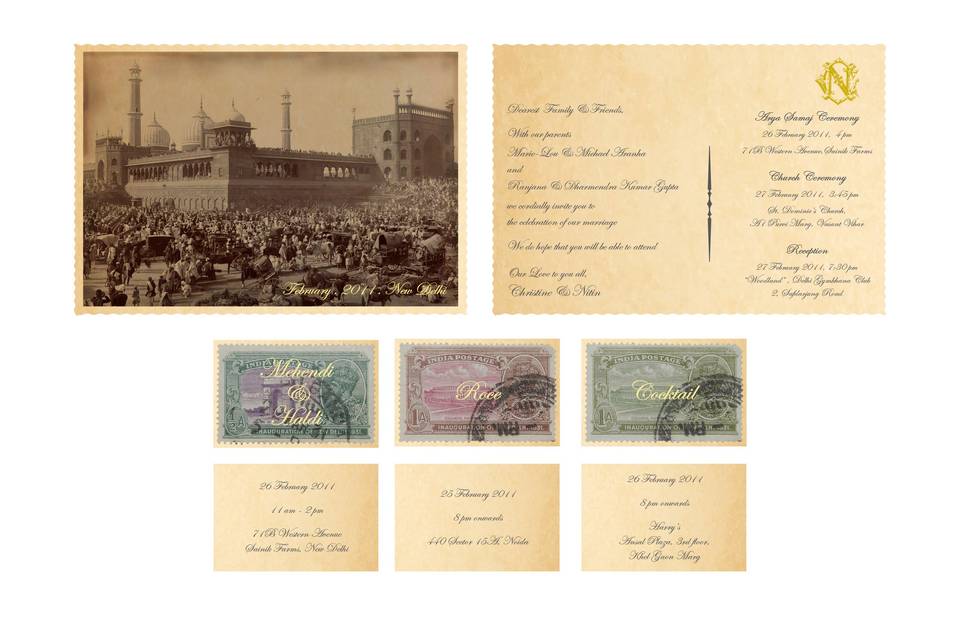 February, 2011, New Delhi
Dearest Family & Friends,
With our parents
Marie-Lou & Michael Aranha
and
Ranjana & Dharmendra Kumar Gupta
we cordially invite you to
the celebration of our marriage
We do hope that you will be able to attend
Our Love to you all,
Christine & Nitin
N
Arya Samaj Ceremony
26 February 2011, 4pm
71B Western Avenue, Sainik Farms
Church Ceremony
27 February 2011, 3:45pm
St. Dominic's Church,
A1 Poorvi Marg, Vasant Vihar
Reception
27 February 2011, 7:30pm
"Woodland", Delhi Gymkhana Club
2, Safdarjung Road
INDIA POSTAGE
Mehendi
&
Haldi
INAUGURATION OF NEW DELHI. 1931.
INDIA POSTAGE
Roce
1A
INAUGURATION OF
1931.
INDIA POSTAGE
Cocktail
1A
INAUGURATION OF
1931.
26 February 2011
11am - 2pm
71B Western Avenue
Sainik Farms, New Delhi
25 February 2011
8pm onwards
440 Sector 15A, Noida
26 February 2011
8pm onwards
Harry's
Ansal Plaza, 3rd floor,
Khel Gaon Marg